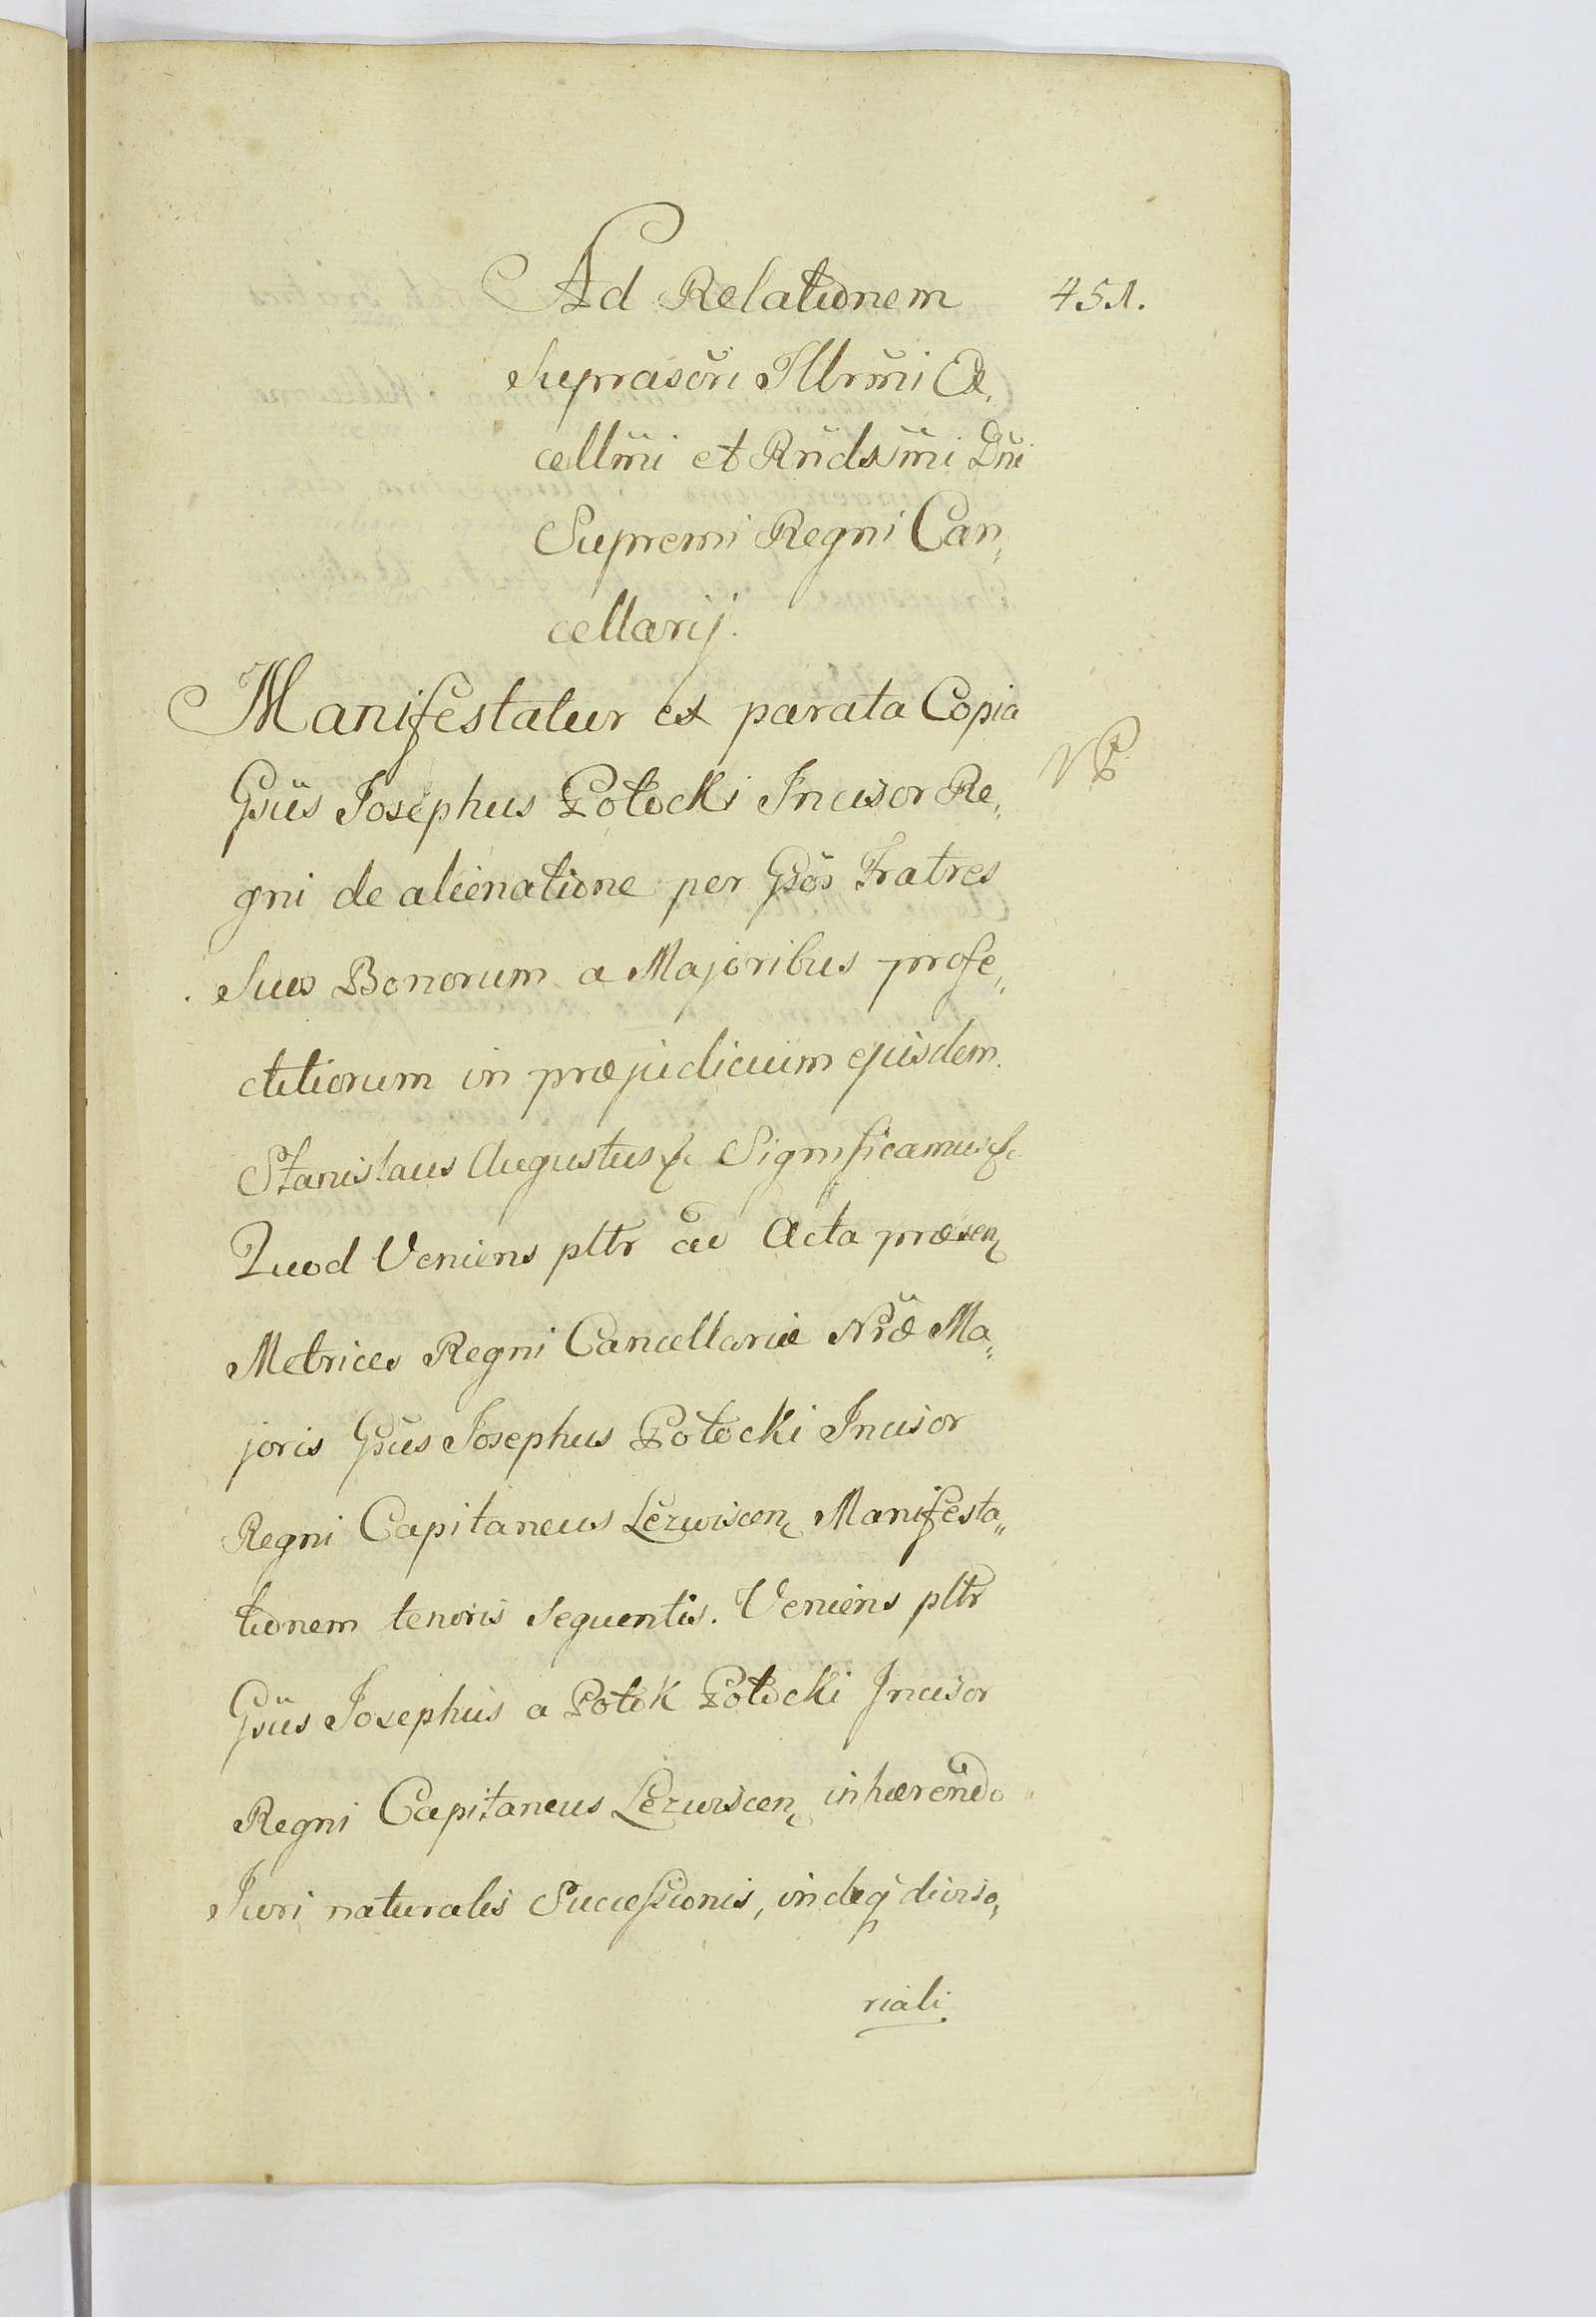 Ad Relationem 451.
Suprascri Illrmi Ex,
cellmi et Rndssmi Dni
Supremi Regni Can,,
cellarij.
Manifestatur ex parata Copia
Gsus Josephus Potocki Incisor Re,,
gni de alienatione per Gsos Fratres
Suos Bonorum a Majoribus profe,,
ctitiorum in præjudicium ejusdem.
Stanislaus Augustus &c Significamus &c
Quod Veniens pltr ad Acta præsen,
Metrices Regni Cancellariæ Nræ Ma,,
joris Gsus Josephus Potocki Incisor
Regni Capitaneus Lezuiscen, Manifesta,,
tionem tenoris sequentis. Veniens pltr
Gsus Josephus a Potok Potocki Incisor
Regni Capitaneus Lezuiscen, inhærendo
Juri naturalis Successionis, indeq diviso,,
riali